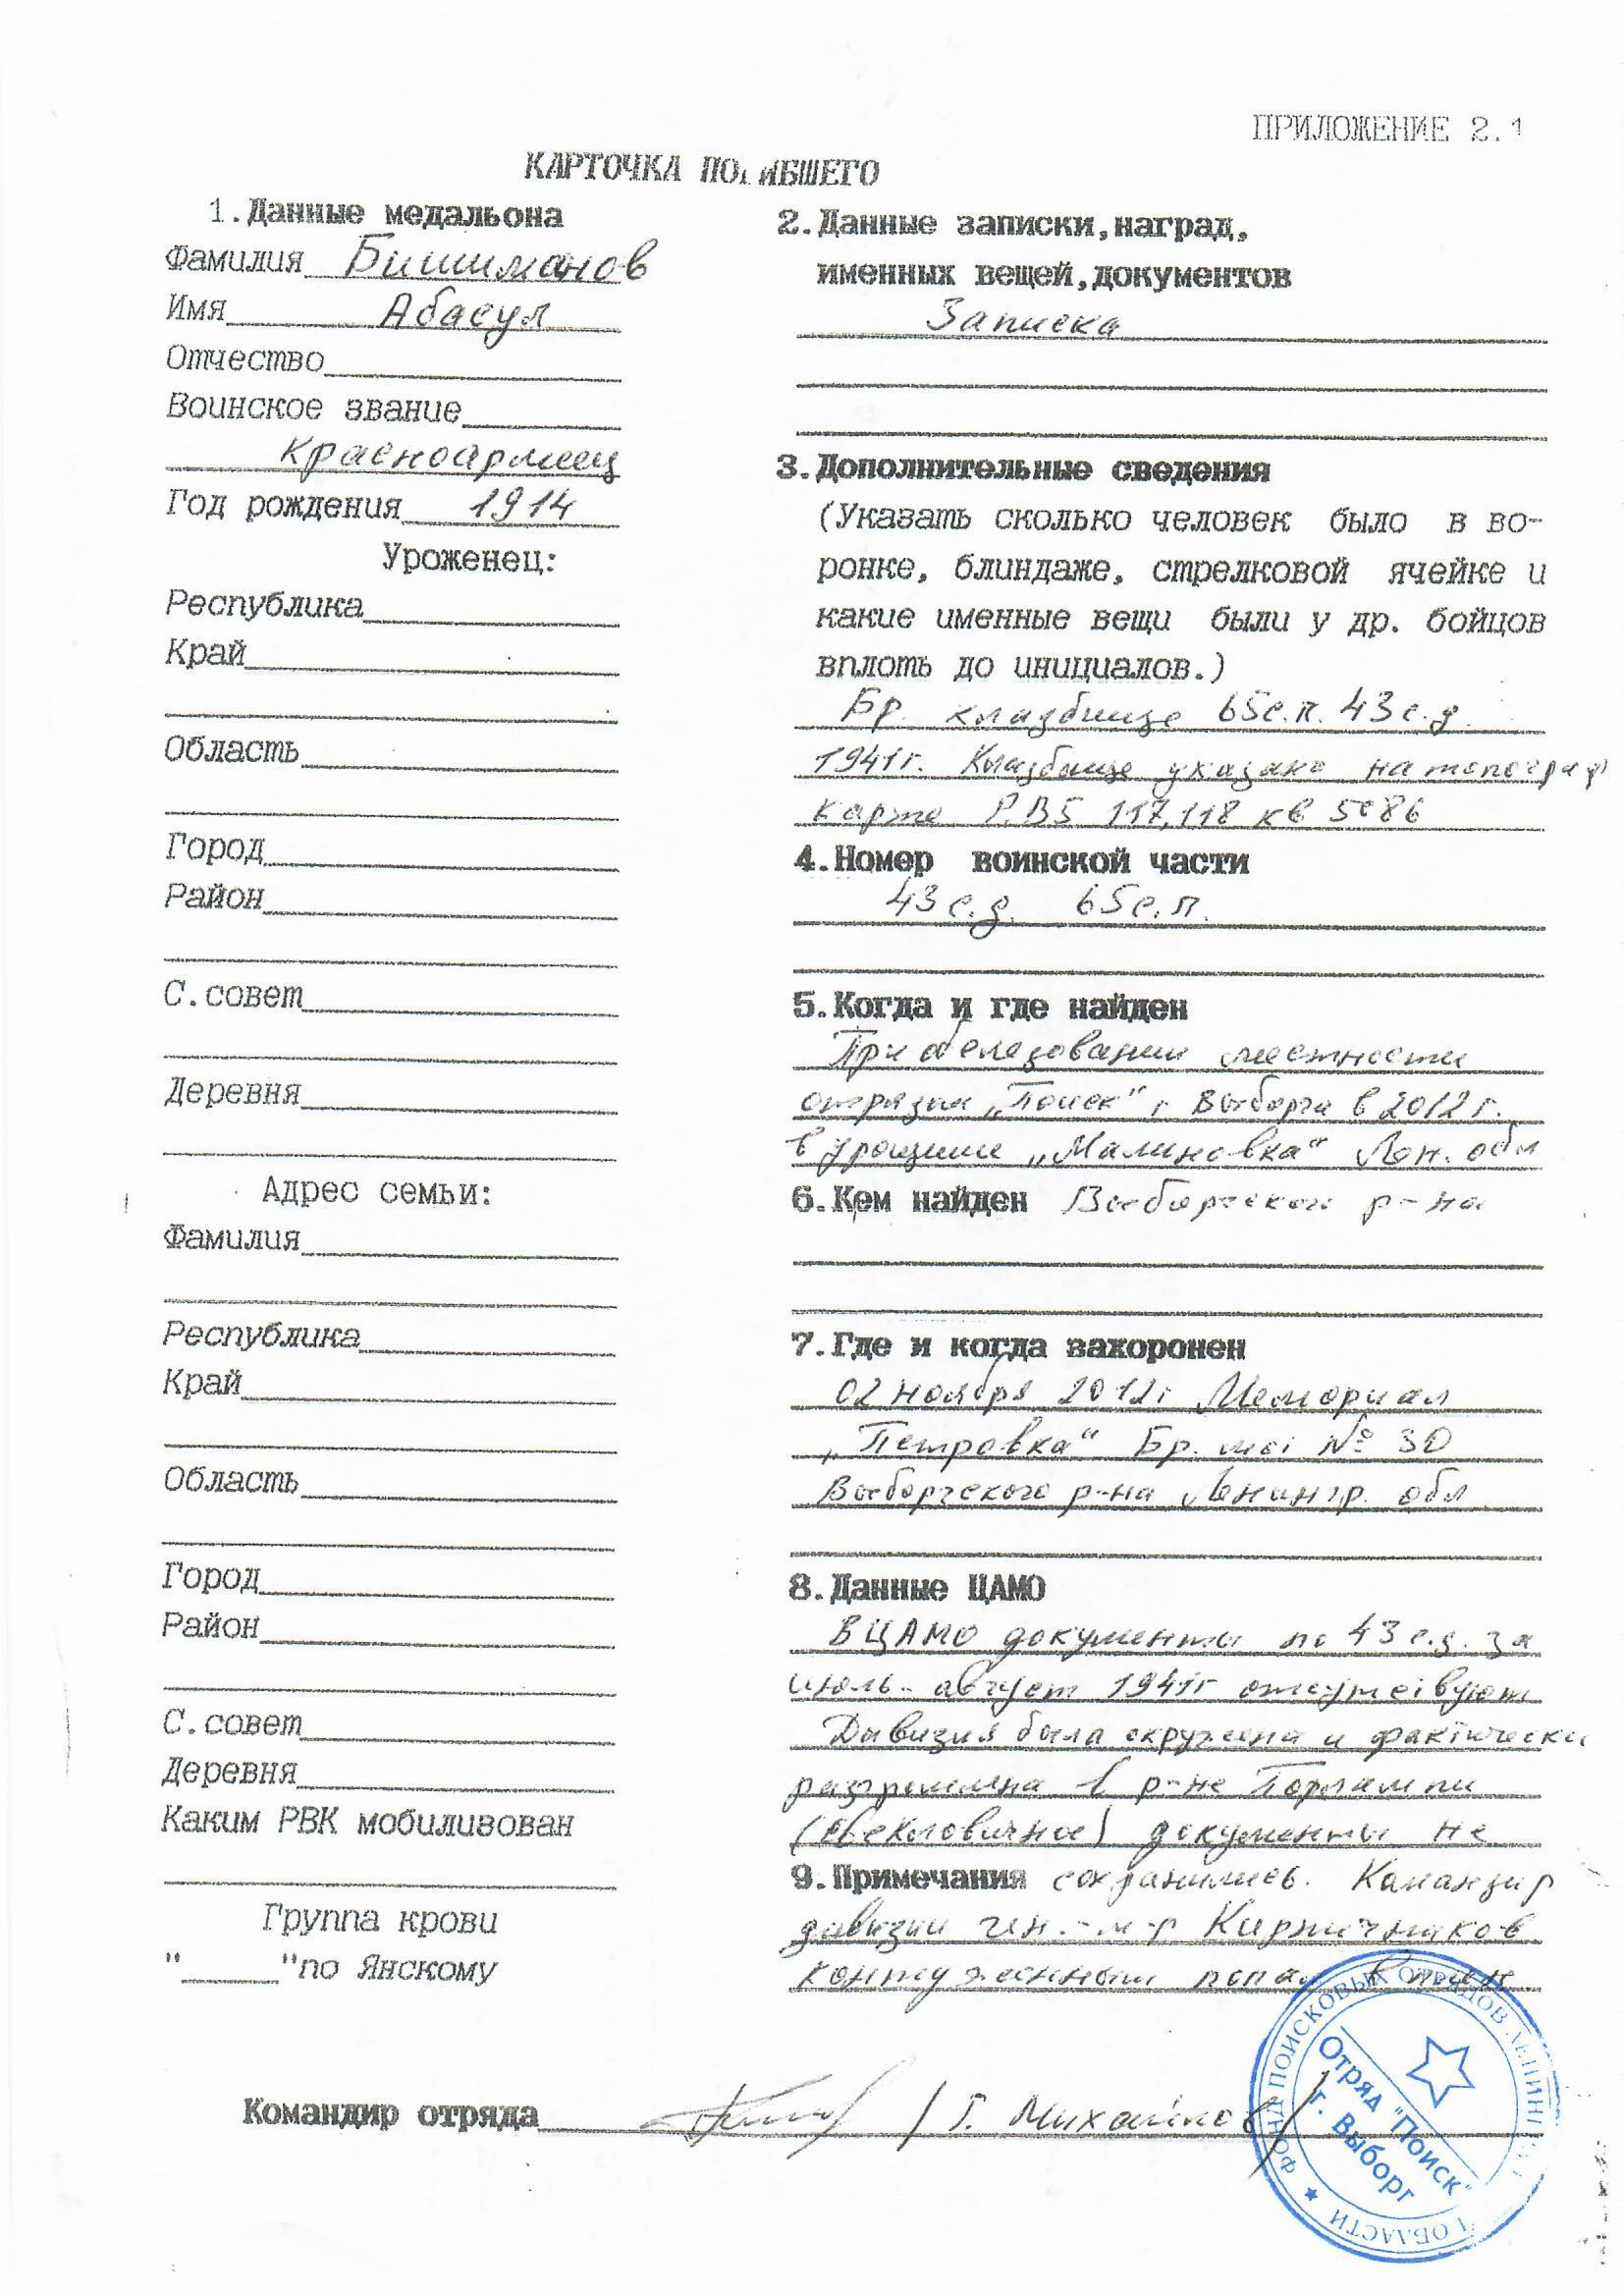 ПРИЛОЖЕНИЕ 2.1
КАРТОЧКА ПОГИБШЕГО
1.Данные медальона
Фамилия Бишиманов
Имя Абасул
Отчество
Воинское звание
Красноармеец
Год рождения 1914
Уроженец:
Республика
Край
Область
Город
Район
С.совет
Деревня
Адрес семьи:
Фамилия
Республика
Край
Область
Город
Район
С.совет
Деревня
Каким РВК мобилизован
Группа крови
"______"по Янскому
2.Данные записки,наград,
именных вещей,документов
Записка
3.Дополнительные сведения
(Указать сколько человек было в во-
ронке, блиндаже, стрелковой ячейке и
какие именные вещи были у др. бойцов
вплоть до инициалов.)
Бр. кладбище 65с.п. 43с.д.
1941г. Кладбище указано на топограф
карте Р.В5 117,118 кв 5286
4.Номер воинской части
43с.д. 65с.п.
5.Когда и где найден
При обследовании местности
отрядом „Поиск" г Выборга в 2012г.
в урочище „Малиновка" Лен. обл
6.Кем найден Выборгского р-на
7.Где и когда захоронен
02 ноября 2012г Мемориал
„Петровка" Бр. мог № 30
Выборгского р-на Ленингр. обл
8.Данные ЦАМО
В ЦАМО документы по 43 с.д. за
июль-август 1941г отсутствуют
Дивизия была окружена и фактически
разгромлена в р-не Порлампи
(Свекловичное) документы не
9.Примечания сохранились. Командир
дивизии ген.-м-р Кирпичников
контуженным попал в плен.
Командир отряда / Г. Михайлов /
ФОНД ПОИСКОВЫХ ОТРЯДОВ ЛЕНИНГ ОБЛАСТИ
Отряд "Поиск"
г. Выборг